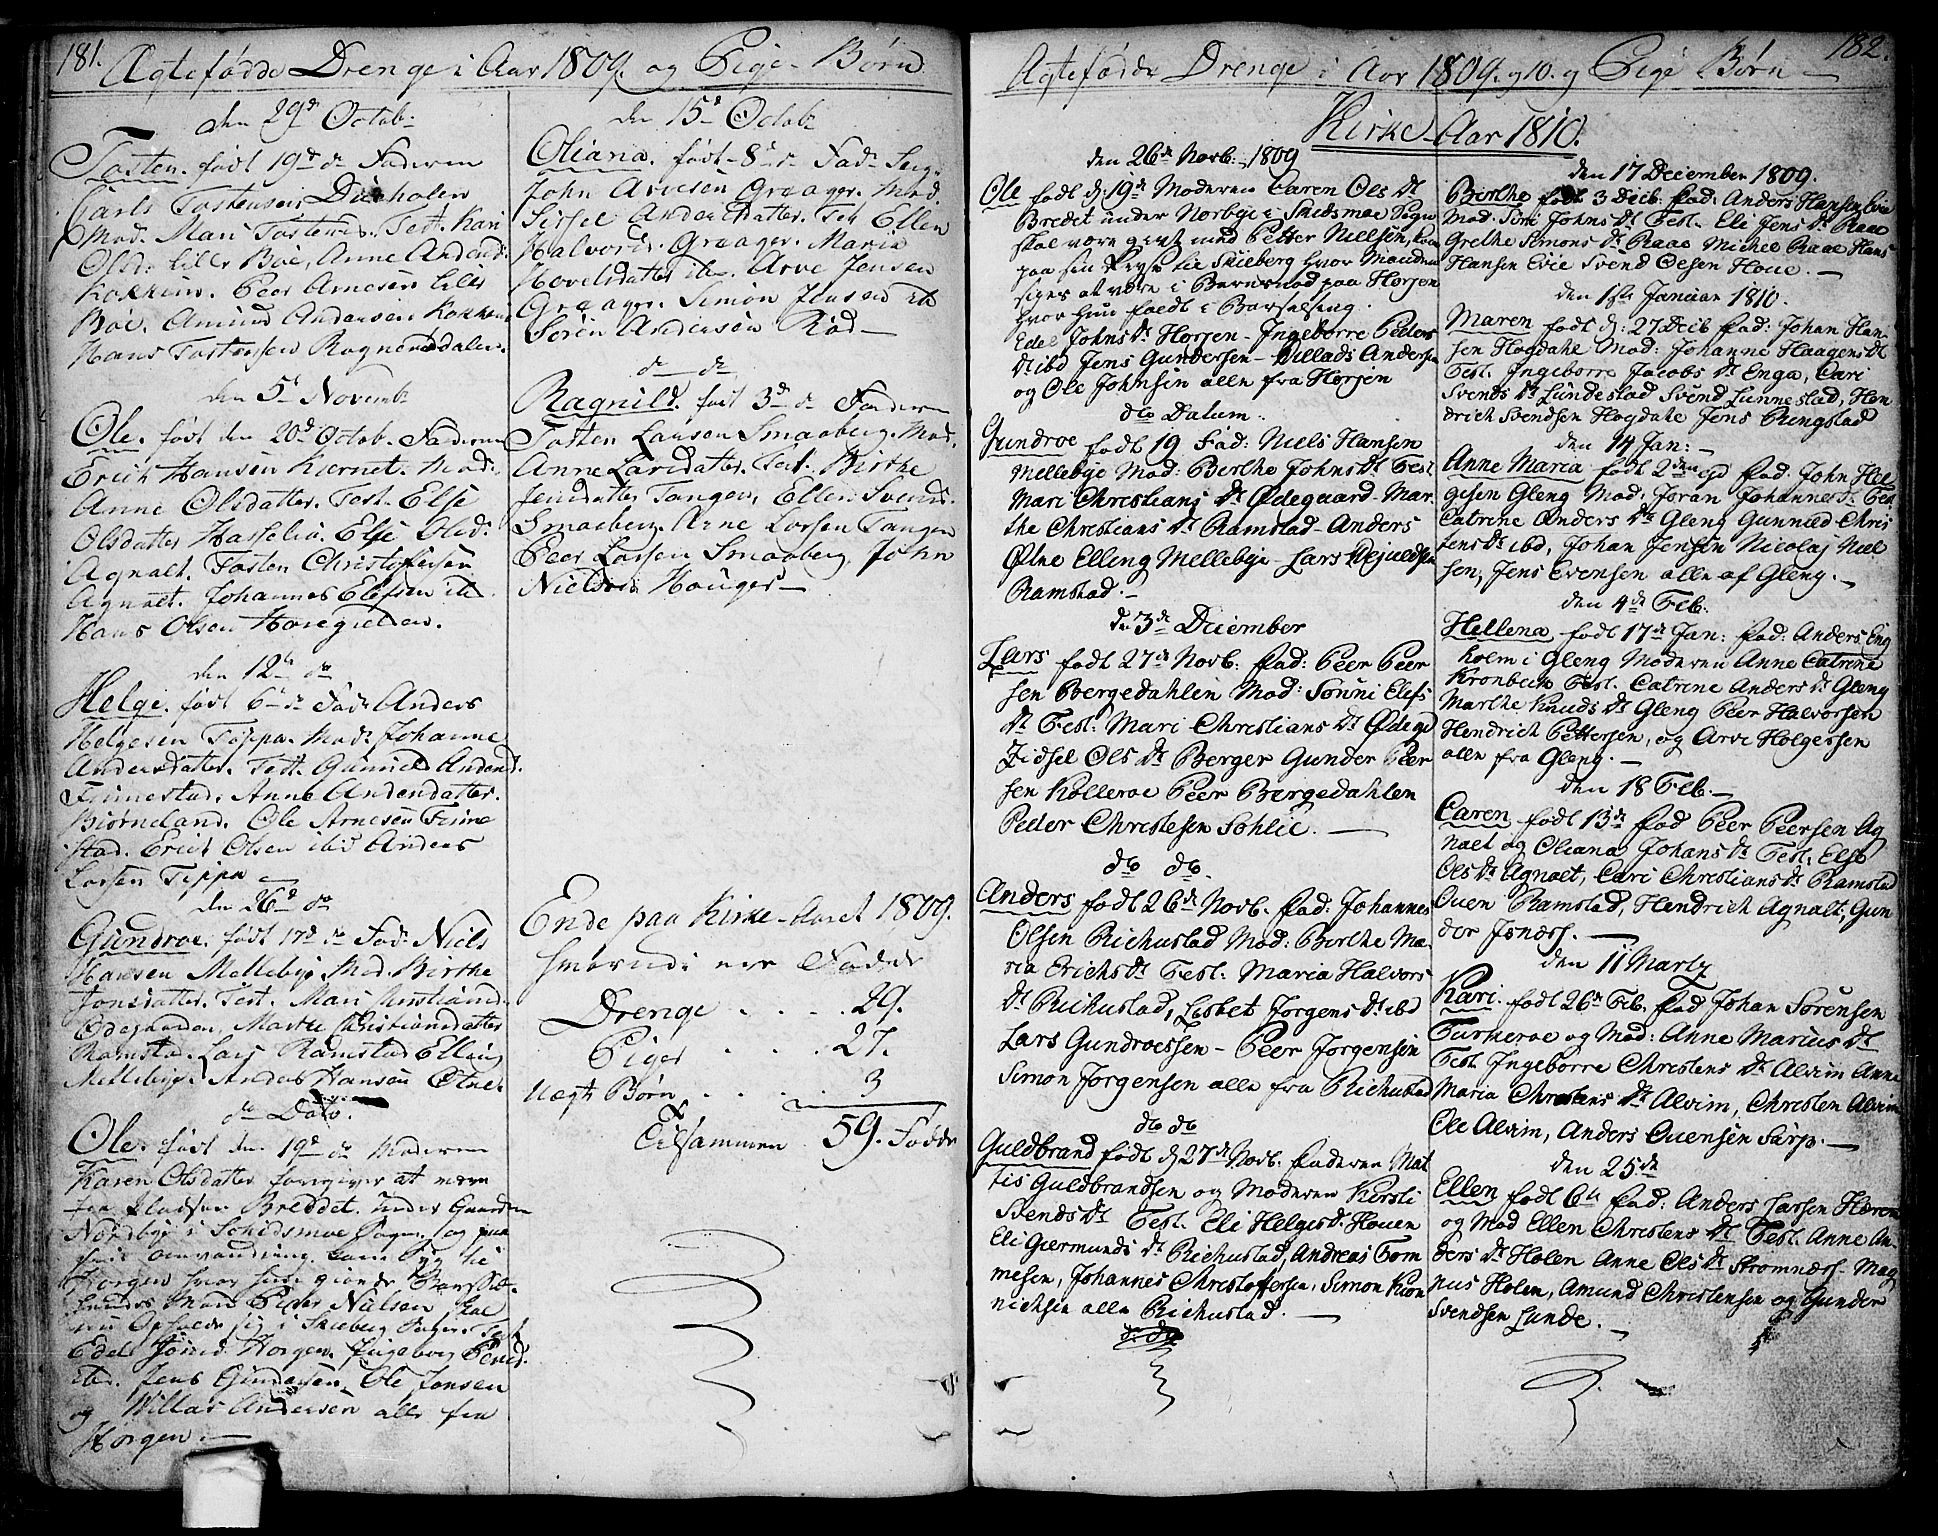 181.
Ægtefødde Drenge i Aar 1809. og Pige-Børn
den 29de Octob.
Tosten. født 19de de Faderen
Carls Tostensen
Mod. Mari Tostensd. Test. Kari
Olsd. Lille Böe, Anne Andersd.
Kokkim. Peer Arnesen Lille
Böe. Amund Andersen Kokkim
Hans Tostensen Rognerødalen.
den 5t Novemb
Ole. født den 20de Octob. Faderen
Erich Hansen Kiernet. Mod.
Anne Olsdatter. Test. Else
Olsdatter Hasselia. Else Olsd.
Agnalt. Tosten Christofersen
Agnalt. Johannes Elefsen ibd.
Hans Olsen
den 12te de
Helge. født 6te de Fad. Anders
Helgesen Tippa. Mod. Johanne
Andersdatter. Test. Gunnild Andersd.
Finnestad. Anne Andersdatter.
Biørneland. Ole Arnesen Finne
stad. Erich Olsen ibid Anders
Larsen Tippa
den 26de do
Gundroe. født 17de de Fad. Niels
Hansen Mellebye Mod. Birthe
Jonsdatter. Test. Mari Christiansd.
Ødegaarden, Marthe Christiansdatter
Ramstad. Lars Ramstad Elling
Mellebye. Anders Hansen Ølne.
do Dato.
Ole. født den 19de de Moderen
Karen Olsdatter foregiver at være
fra Pladsen Breddet under Gaarden
Nordbye i Schidsmoe Sogn, og paa
sin omvandring kom syg til
Horgen hvor hun giorde Barsel
hendes Mand Peder Nielsen skal
nu Opholde sig i Skieberg Sogn Test
Edel Jonsd. Horgen. Ingeborg Pedersd.
ibd. Jens Gundersen, Ole Jonsen
og Villas Andersen alle fra
Horgen.
den 15de Octob
Oliana. født 8de de Fad. Serg.
John Arvesen Graager. Mod.
Sissel Andersdatter. Test Ellen
Halvorsd. Graager. Maria
Hovelsdatter ibd. Arve Jensen
Graager. Simon Jensen ibd
Soren Andersen Rød
do do
Ragnild. født 3de de Faderen
Tosten Larsen Smaaberg. Mod.
Anne Larsdatter. Test. Birthe
Jensdatter Tangen, Ellen Svends.
Smaaberg. Arne Larsen Tangen
Peer Larsen Smaaberg. John
Nielsen Houger
Ende paa Kirke-Aaret 1809.
hvorudi ere Fødde
Drenge . . . . 29.
Piger . . . . 27.
Uægt Børn . . . . 3
Tilsammen 59. Fødde
182.
Ægtefødde Drenge i Aar 1809. og 10. og Pige Børn
Kirke-Aar 1810.
den 26de Novb. 1809
Ole født d. 19de Moderen Caren Ols Dt
Bredet under Norbye i Skidsmoe Sogn
skal være givt med Petter Nielsen, kom
paa sin Reyse til Skieberg hvor Manden
siges at være i Barnsnød paa Horjen
hvor hun fødte i Barselseng.
Edel Johns Dt Horjen - Ingeborre Peders
Dt ibd Jens Gundersen - Villads Andersen
og Ole Johnsen alle fra Horjen
dto Datum.
Gundroe født 19 Fad: Niels Hansen
Mellebye Mod: Berthe Johns Dt Test
Mari Christians Dt Ødegaard - Mar-
the Christians Dt Ramstad - Anders
Ølne Elling Mellebye Lars
Ramstad.
den 3de December
Lars født 27de Novb. Fad: Peer Peer
sen Bergedahlen Mod: Sønni Elefs
Dt Test: Mari Christians Dt Ødegd
Zidsel Ols Dt Berger Gunder Peer
sen Kolleroe Peer Bergedahlen
Peder Christesen Sohlie.
dto do.
Anders født 26de Novb. Fad: Johannes
Olsen Richustad Mod: Berthe Ma-
ria Erichs Dt Test: Maria Halvors
Dt Richustad, Lisbet Jorgens Dt ibd
Lars Gundroessen - Peer Jorgensen
Simon Jorgensen alle fra Richustad
dto do
Guldbrand født d 27de Novb. Faderen Mat
tis Guldbrandsen og Moderen Kersti
Svends Dt Test. Eli Helges Dt Houen
Eli Giermunds Dt Richustad, Andreas Tom
mesen, Johannes Christoffersen, Simon
nichsen alle Richustad.
den 17 December 1809.
Berthe født 3 Decb. Fad: Anders Hansen Evie
Mod: Siri Johns Dt Test. Eli Jens Dt Raae
Grethe Simons Dt Raae Michel Raae Hans
Hansen Evie Svend Olesen Houe.
den 1ste Januar 1810.
Maren født d: 27 Decb Fad: Johan Han
sen Hogdahl Mod: Johanne Haagens Dt
Test. Ingeborre Jacobs Dt Enga, Cari
Svends Dt Lundestad Svend Lunnestad, Hen
drich Svendsen Hogdahl Jens Ringstad
den 14 Jan:
Anne Maria født 2den ejd Fad: John Hel
gesen Gleng Mod: Joran Johannes Dt Test
Catrine Anders Dtr Gleng Gunnild Chris
tens Dt ibd, Johan Jensen Nicolaj Niel
sen, Jens Evensen alle af Gleng.
den 4de Feb.
Hellena født 17de Jan: Fad: Anders Eng
holm i Gleng Moderen Anne Catrine
Kronbech Test. Catrine Anders Dt Gleng
Marthe Knuds Dt Gleng Peer Halvorsen
Hendrich Pettersen, og Arve Holgersen
alle fra Gleng.
den 18 Feb.
Caren født 13de Fad Peer Peersen Ag
nalt og Oliana Johans Dt Test. Else
Ols Dt Agnalt, Cari Christians Dt Ramstad
Ouen Ramstad, Hendrich Agnalt, Gun
der
den 11 Martz
Kari. født 26de Feb. Fad Johan Sorensen
Torkeroe og Mod: Anne Marius Dt
Test Ingeborre Christens Dt Alvim Anne
Maria Christens Dt Alvim, Christen Alvim
Ole Alvim, Anders Ouensen Sarp.
den 25de
Ellen født 6te Fad: Anders Larsen
og Mod Ellen Christens Dt Test. Anne An-
ders Dt Holen Anne Ols Dt Stromnæss. Mag
nus Holen, Amund Christensen og Gunder
Svendsen Lunde.